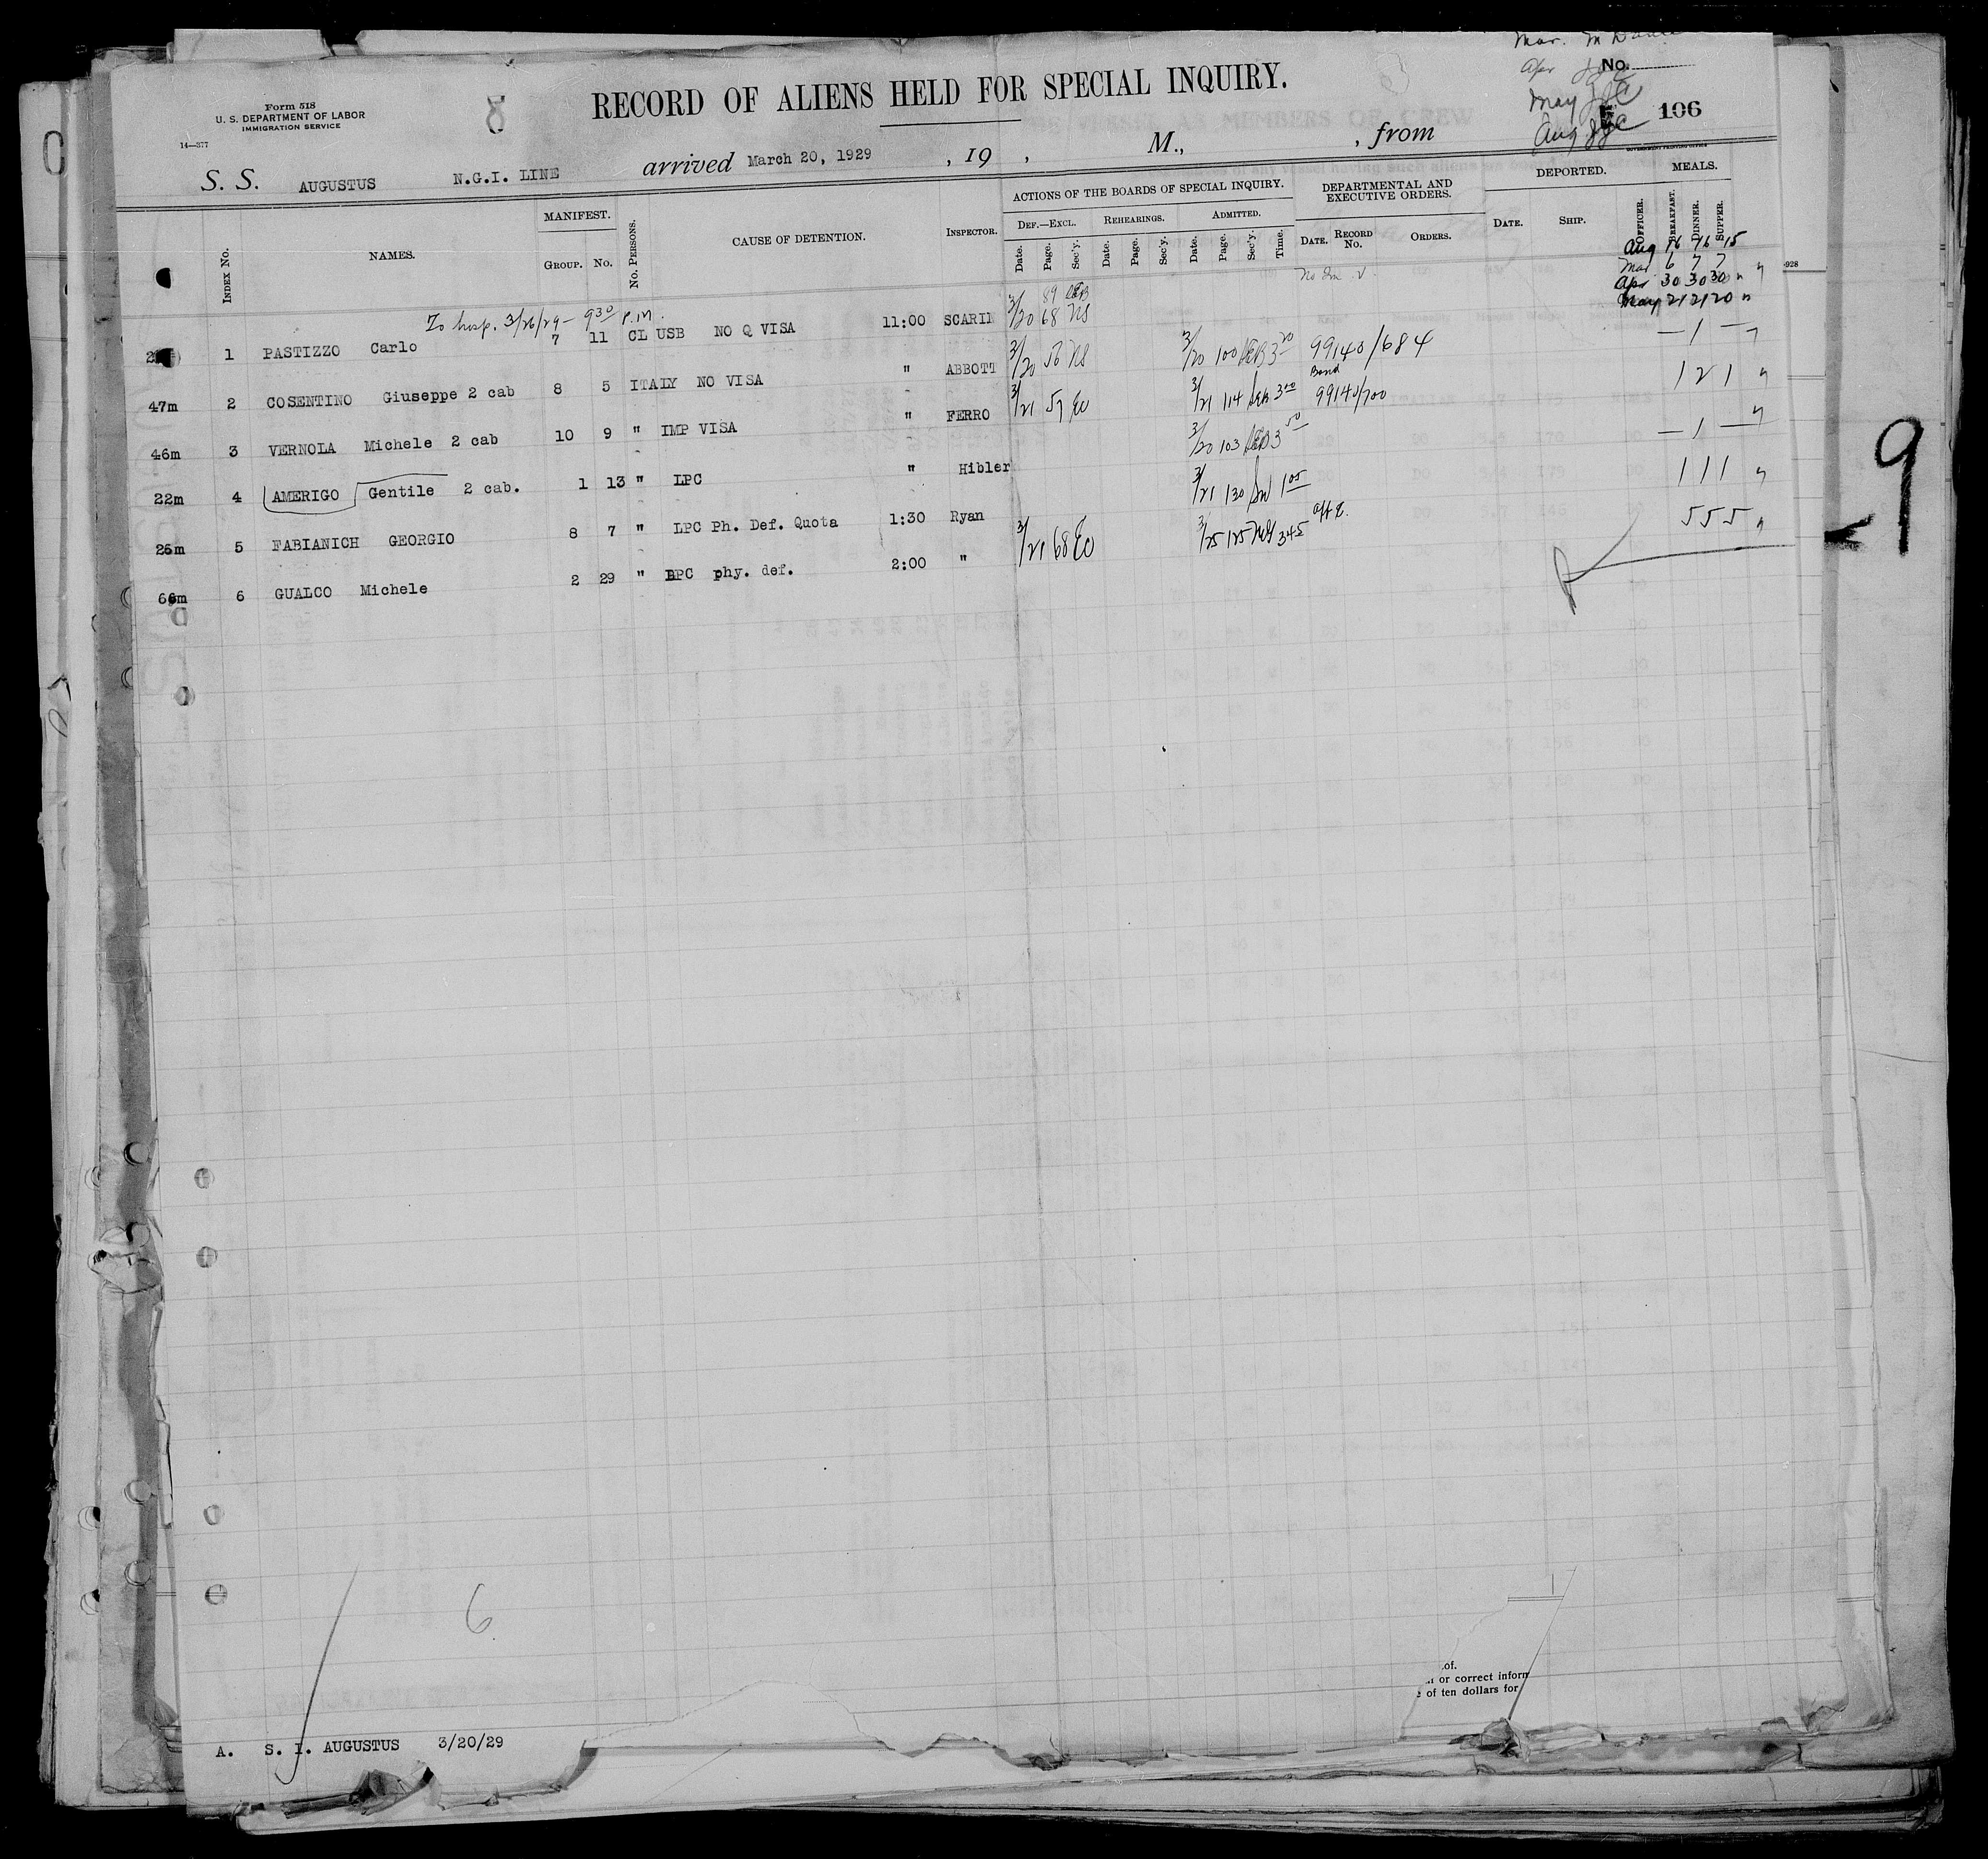 Mar.
Apr No.
Form 518
U. S. DEPARTMENT OF LABOR
IMMIGRATION SERVICE
14—377
8
RECORD OF ALIENS HELD FOR SPECIAL INQUIRY.
May
Aug
106
S. S. AUGUSTUS N.G.I. LINE arrived March 20, 1929 , 19 , M., , from
GOVERNMENT PRINTING OFFICE
INDEX NO. NAMES. MANIFEST. GROUP. NO. NO. PERSONS. CAUSE OF DETENTION. INSPECTOR.
ACTIONS OF THE BOARDS OF SPECIAL INQUIRY.
DEF.—EXCL. Date. Page. Sec'y. REHEARINGS. Date. Page. Sec'y. ADMITTED. Date. Page. Sec'y. Time.
DEPARTMENTAL AND EXECUTIVE ORDERS. DATE. RECORD NO. ORDERS.
DEPORTED. DATE. SHIP. OFFICER.
MEALS. BREAKFAST. DINNER. SUPPER.
Aug 16 16 15
Mar 6 7 7
Apr 30 30 30
May 21 21 20
928
To hosp. 3/26/29 - 9 30 P.M.
89
1 PASTIZZO Carlo 7 11 CL USB NO Q VISA 11:00 SCARIN 3/20 68 NS
47m 2 COSENTINO Giuseppe 2 cab 8 5 ITALY NO VISA " ABBOTT 3/20 56 NS 3/20 100 3 20 99140/684 — 1 —
Bond
46m 3 VERNOLA Michele 2 cab 10 9 " IMP VISA " FERRO 3/21 57 EO 3/21 114 3 00 99140/700 1 2 1
22m 4 AMERIGO Gentile 2 cab. 1 13 " LPC " Hibler 3/20 103 3 50 — 1 —
26m 5 FABIANICH GEORGIO 8 7 " LPC Ph. Def. Quota 1:30 Ryan 3/21 130 1 05 1 1 1
66m 6 GUALCO Michele 2 29 " LPC phy. def. 2:00 " 3/21 68 EO 3/25 125 3 45 5 5 5
9
6
of.
or correct inform
of ten dollars for
A. S. I. AUGUSTUS 3/20/29